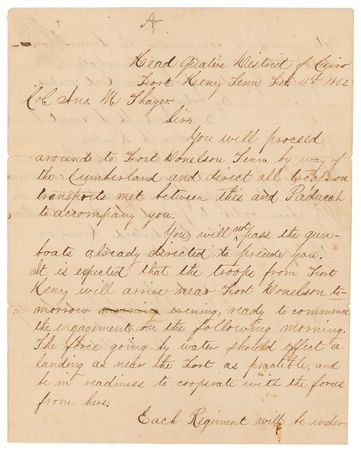 A
Head Quarters District of Cairo
Fort Henry Tenn Feb 11th 1862
Col Jno. M Thayer
Sir
You will proceed
around to Fort Donelson Tenn by way of
the Cumberland and direct all
transports met between this and Paducah
to accompany you.
You will not pass the gun-
boats already directed to precede you.
It is expected that the troops from Fort
Henry will arrive near Fort Donelson to-
morrow evening, ready to commence
the engagement on the following morning.
The force going by water should effect a
landing as near the Fort as practible, and
be in readiness to cooperate with the forces
from here.
Each Regiment will be under